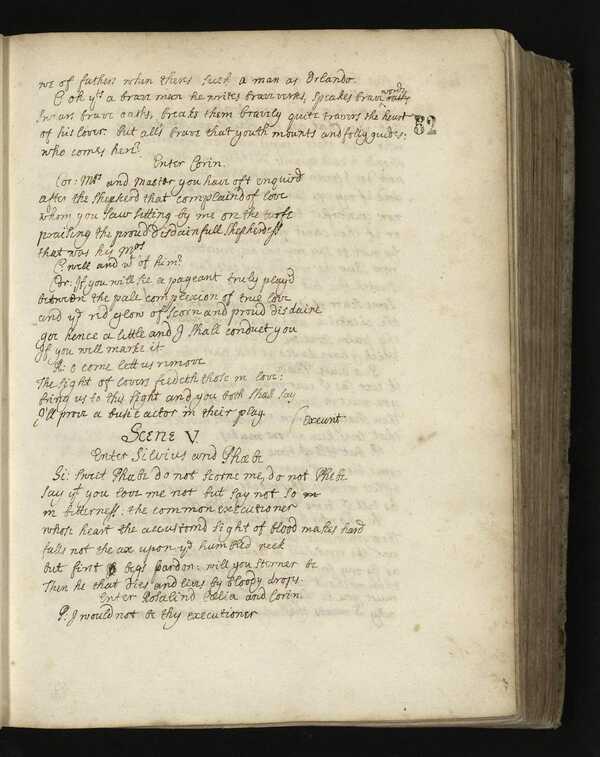 we of fathers when there's such a man as Orlando.
C: oh yt's a brave man he writes brave verses, speakes brave words
82
swears brave oaths, breaks them bravely quite travers the heart
of his lover. but all's brave that youth mounts and folly guides:
who comes here?
Enter Corin.
Cor: Mrs and Master you have oft enquird
after the shepherd that complaind of love
whom you saw sitting by me on the turfe
praising the proud disdainfull shepherdess
that was his Mrs
C: well and wt of him?
Cor: If you will see a pageant truly playd
between the pale complexion of true love
and ye red glow of scorn and proud disdaine
goe hence a little and I shall conduct you
If you will marke it
R: o come lett us remove
The sight of lovers feedeth those in love:
bring us to this sight and you both shall say
I'll prove a busie actor in their play.
Exeunt
SCENE V.
Enter Silvius and Phæbe
Si: sweet Phæbe do not scorne me, do not Phebe
say yt you love me not but say not so
in bitterness. the common executioner
whose heart the accustomd sight of blood makes hard
falls not the ax upon ye humbled neck
but first begs pardon: will you sterner be
Then he that dies and lives by bloody drops.
Enter Rosalind Cælia and Corin.
P: I would not be thy executioner